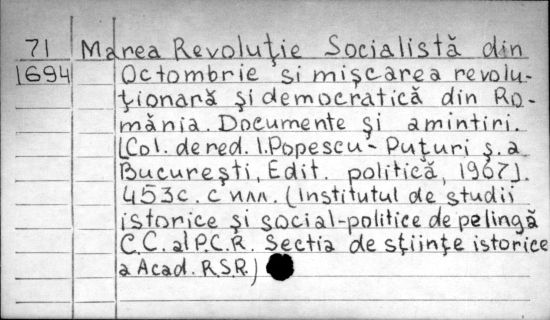 71 Marea Revoluţie Socialistă din
1694 Octombrie si mişcarea revolu-
ţionară şi democratică din Ro-
mănia. Documente şi amintiri.
[Col. de red. I. Popescu-Puţuri ş. a
Bucureşti, Edit. politică, 1967].
453c. с илл. (Institutul de studii
istorice şi social-politice de pe lingă
C.C. al P.C.R. Sectia de ştiinţe istorice
a Acad. R.S.R.)